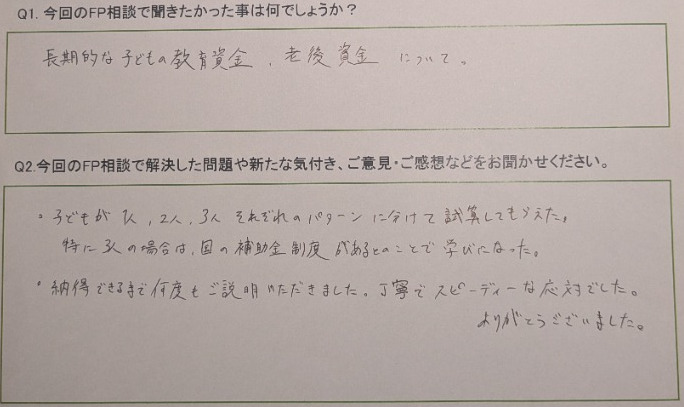 Q1. 今回のFP相談で聞きたかった事は何でしょうか？
長期的な子どもの教育資金、老後資金について。
Q2.今回のFP相談で解決した問題や新たな気付き、ご意見・ご感想などをお聞かせください。
・子どもが1人、2人、3人それぞれのパターンに分けて試算してもらえた。
特に3人の場合は、国の補助金制度があるとのことで学びになった。
・納得できるまで何度もご説明いただきました。丁寧でスピーディーな応対でした。
ありがとうございました。